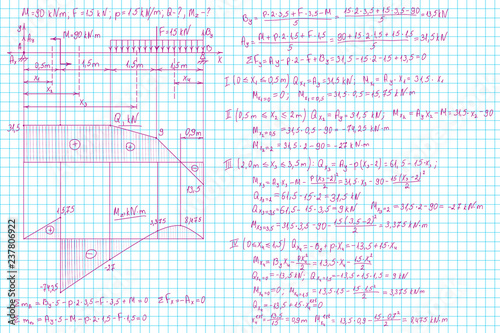 M=90 kN·m, F=15 kN, p=15 kN/m, Q-?, Mz-?
y
Ax
Ay
M=90 kN·m
F=15 kN
By
A
B
x
0,5m
1,5m
1,5m
1,5m
x₁
x₂
x₃
x₄
Q, kN
31,5
9
0,9m
13,5
15,75
M, kN·m
3,375
8,475
-27
-74,25
Σ mA = By·5-p·2·3,5-F·3,5+M=0 ΣFx=-Ax=0
Σ mB = Ay·5-M-p·2·1,5-F·1,5=0
By = p·2·3,5+F·3,5-M/5 = 15·2·3,5+15·3,5-90/5 = 13,5 kN
Ay = M+p·2·1,5+F·1,5/5 = 90+15·2·1,5+15·1,5/5 = 31,5 kN
ΣFy = Ay-p·2-F+By = 31,5-15·2-15+13,5=0
I (0≤x₁≤0,5m) Qx₁=Ay=31,5 kN; Mx₁=Ay·x₁=31,5·x₁
Mx₁=0=0; Mx₁=0,5=31,5·0,5=15,75 kN·m
II (0,5m≤x₂≤2m) Qx₂=Ay=31,5 kN; Mx₂=Ay·x₂-M=31,5·x₂-90
Mx₂=0,5=31,5·0,5-90=-74,25 kN·m
Mx₂=2=31,5·2-90=-27 kN·m
III (2,0m≤x₃≤3,5m): Qx₃=Ay-p(x₃-2)=61,5-15·x₃;
Mx₃=Ay·x₃-M-p(x₃-2)²/2=31,5·x₃-90-15(x₃-2)²/2
Qx₃=2=61,5-15·2=31,5
Qx₃=3,5=61,5-15·3,5=9 kN Mx₃=2=31,5·2-90=-27 kN·m
Mx₃=3,5=31,5·3,5-90-15(3,5-2)²/2=3,375 kN·m
IV (0≤x₄≤1,5) Qx₄=-By+p·x₄=-13,5+15·x₄
Mx₄=By·x₄-px₄²/2=13,5·x₄-15·x₄²/2
Qx₄=0=-13,5 kN; Qx₄=1,5=-13,5+15·1,5=9 kN
Mx₄=0=0; Mx₄=1,5=13,5·1,5-15·1,5²/2=3,375 kN·m
Adobe Stock | #237806922